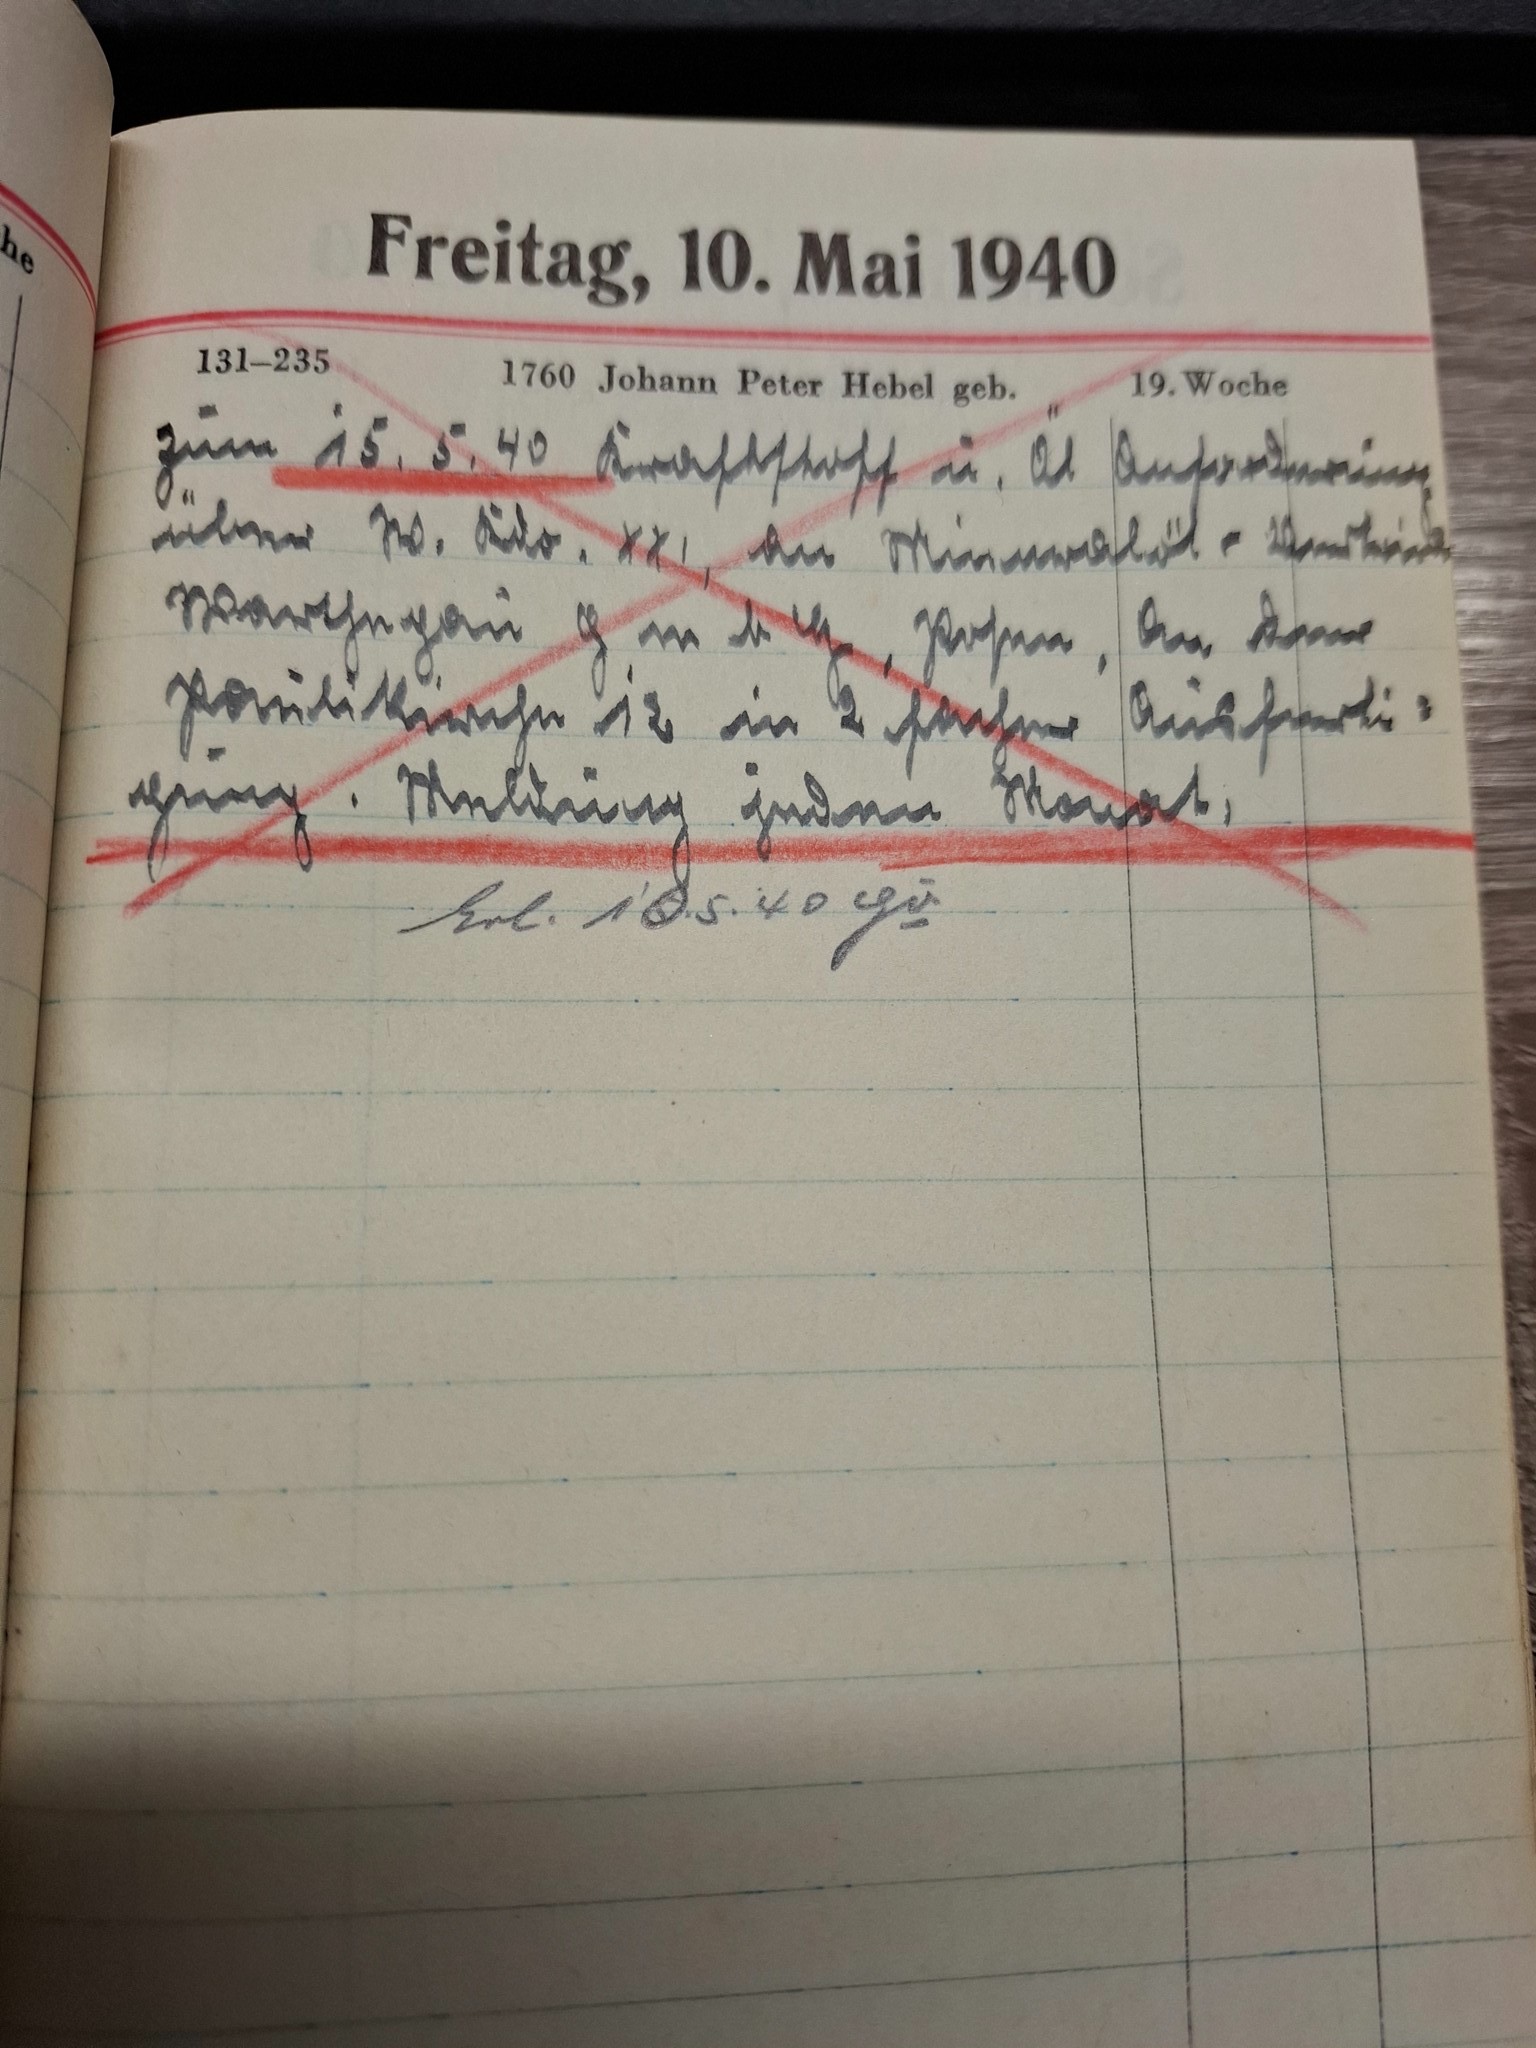 he
Freitag, 10. Mai 1940
131–235 1760 Johann Peter Hebel geb. 19. Woche
Zum 15. 5. 40 Kraftstoff u. Öl Anforderung
über W. Kdo. XXI, an Mineralöl-
Warthegau G m b H, Posen, An der
Paulikirche 12 in 2 facher Ausferti=
gung. Meldung jeden Monat.
Erl. 10.5.40